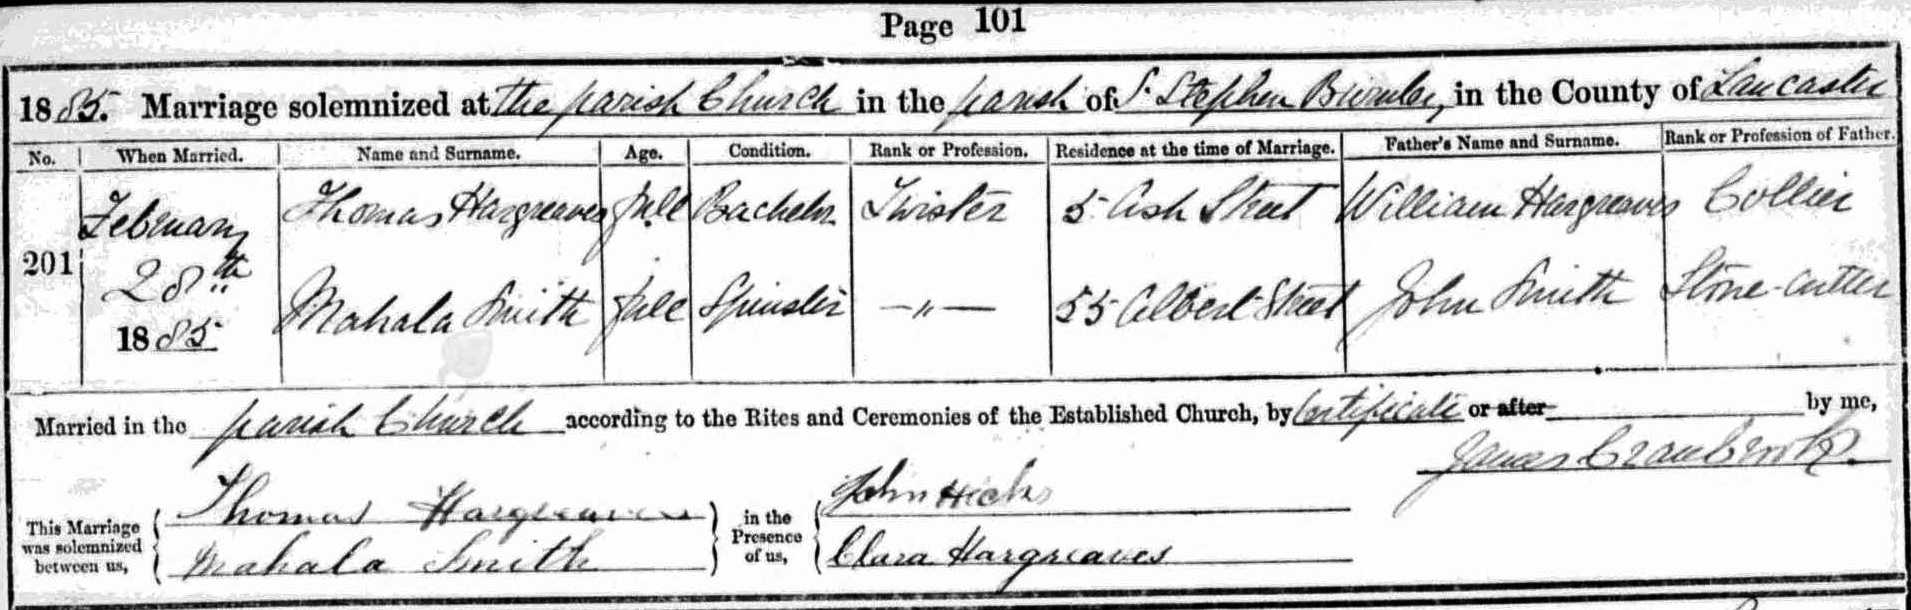 Page 101
1885. Marriage solemnized at the parish Church in the parish of S. Stephen Burnley, in the County of Lancaster
No. When Married. Name and Surname. Age. Condition. Rank or Profession. Residence at the time of Marriage. Father's Name and Surname. Rank or Profession of Father.
February Thomas Hargreaves full Bachelor Twister 5 Ash Street William Hargreaves Collier
201
28th Mahala Smith full Spinster —„— 55 Albert Street John Smith Stone-cutter
1885
Married in the parish Church according to the Rites and Ceremonies of the Established Church, by Certificate or after by me,
James
Thomas Hargreaves John Hicks
This Marriage was solemnized between us, in the Presence of us,
Mahala Smith Clara Hargreaves